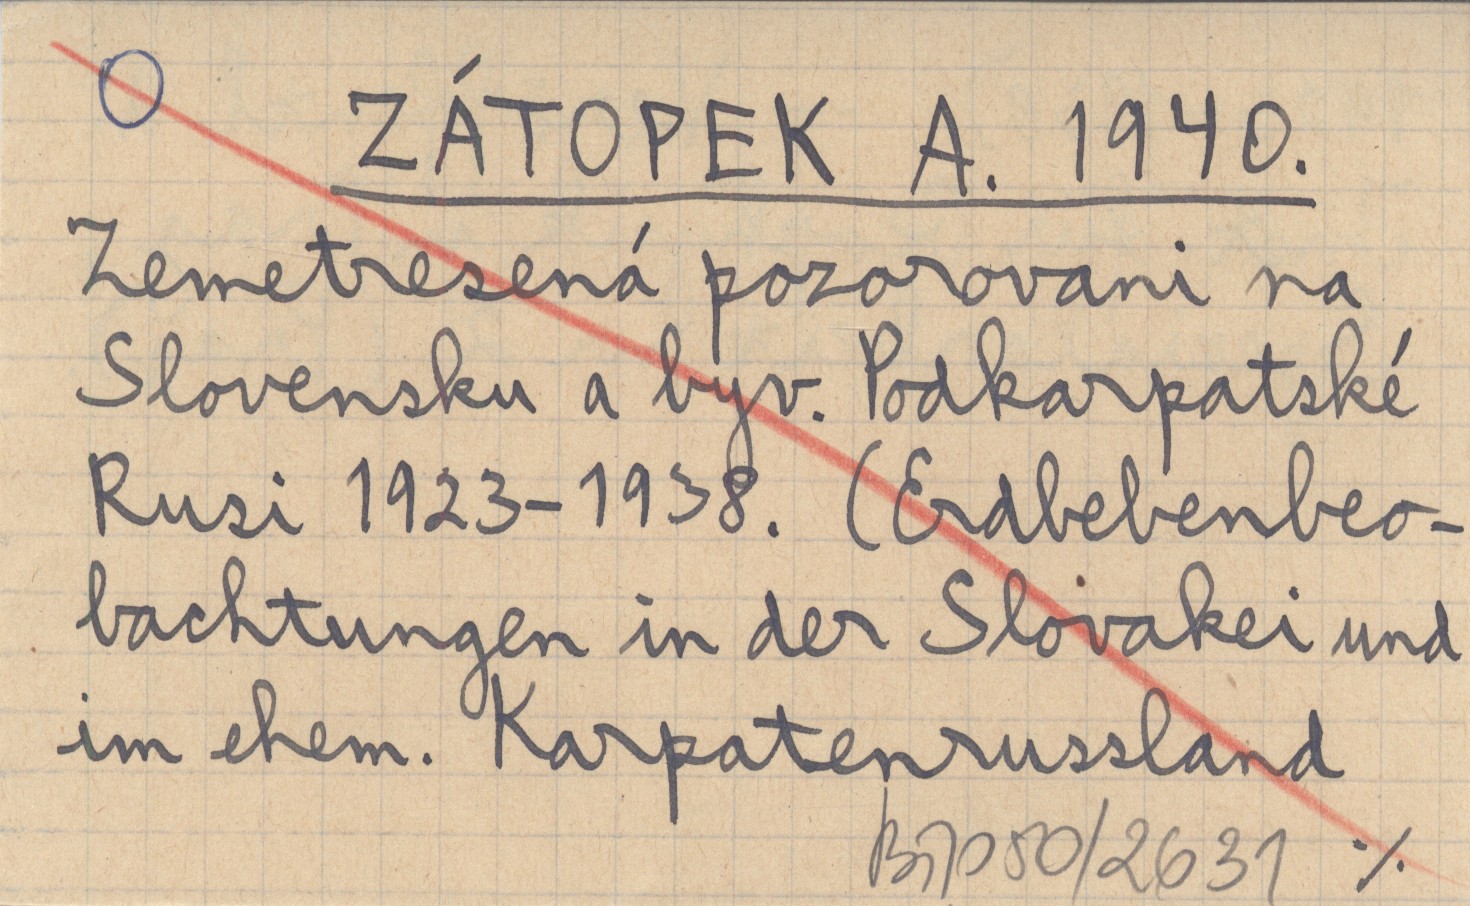 O
ZÁTOPEK A. 1940.
Zemetresená pozorovani na
Slovensku a byv. Podkarpatské
Rusi 1923-1938. (Erdbebenbeo-
bachtungen in der Slovakei und
im ehem. Karpatenrussland
50/2631 ./.